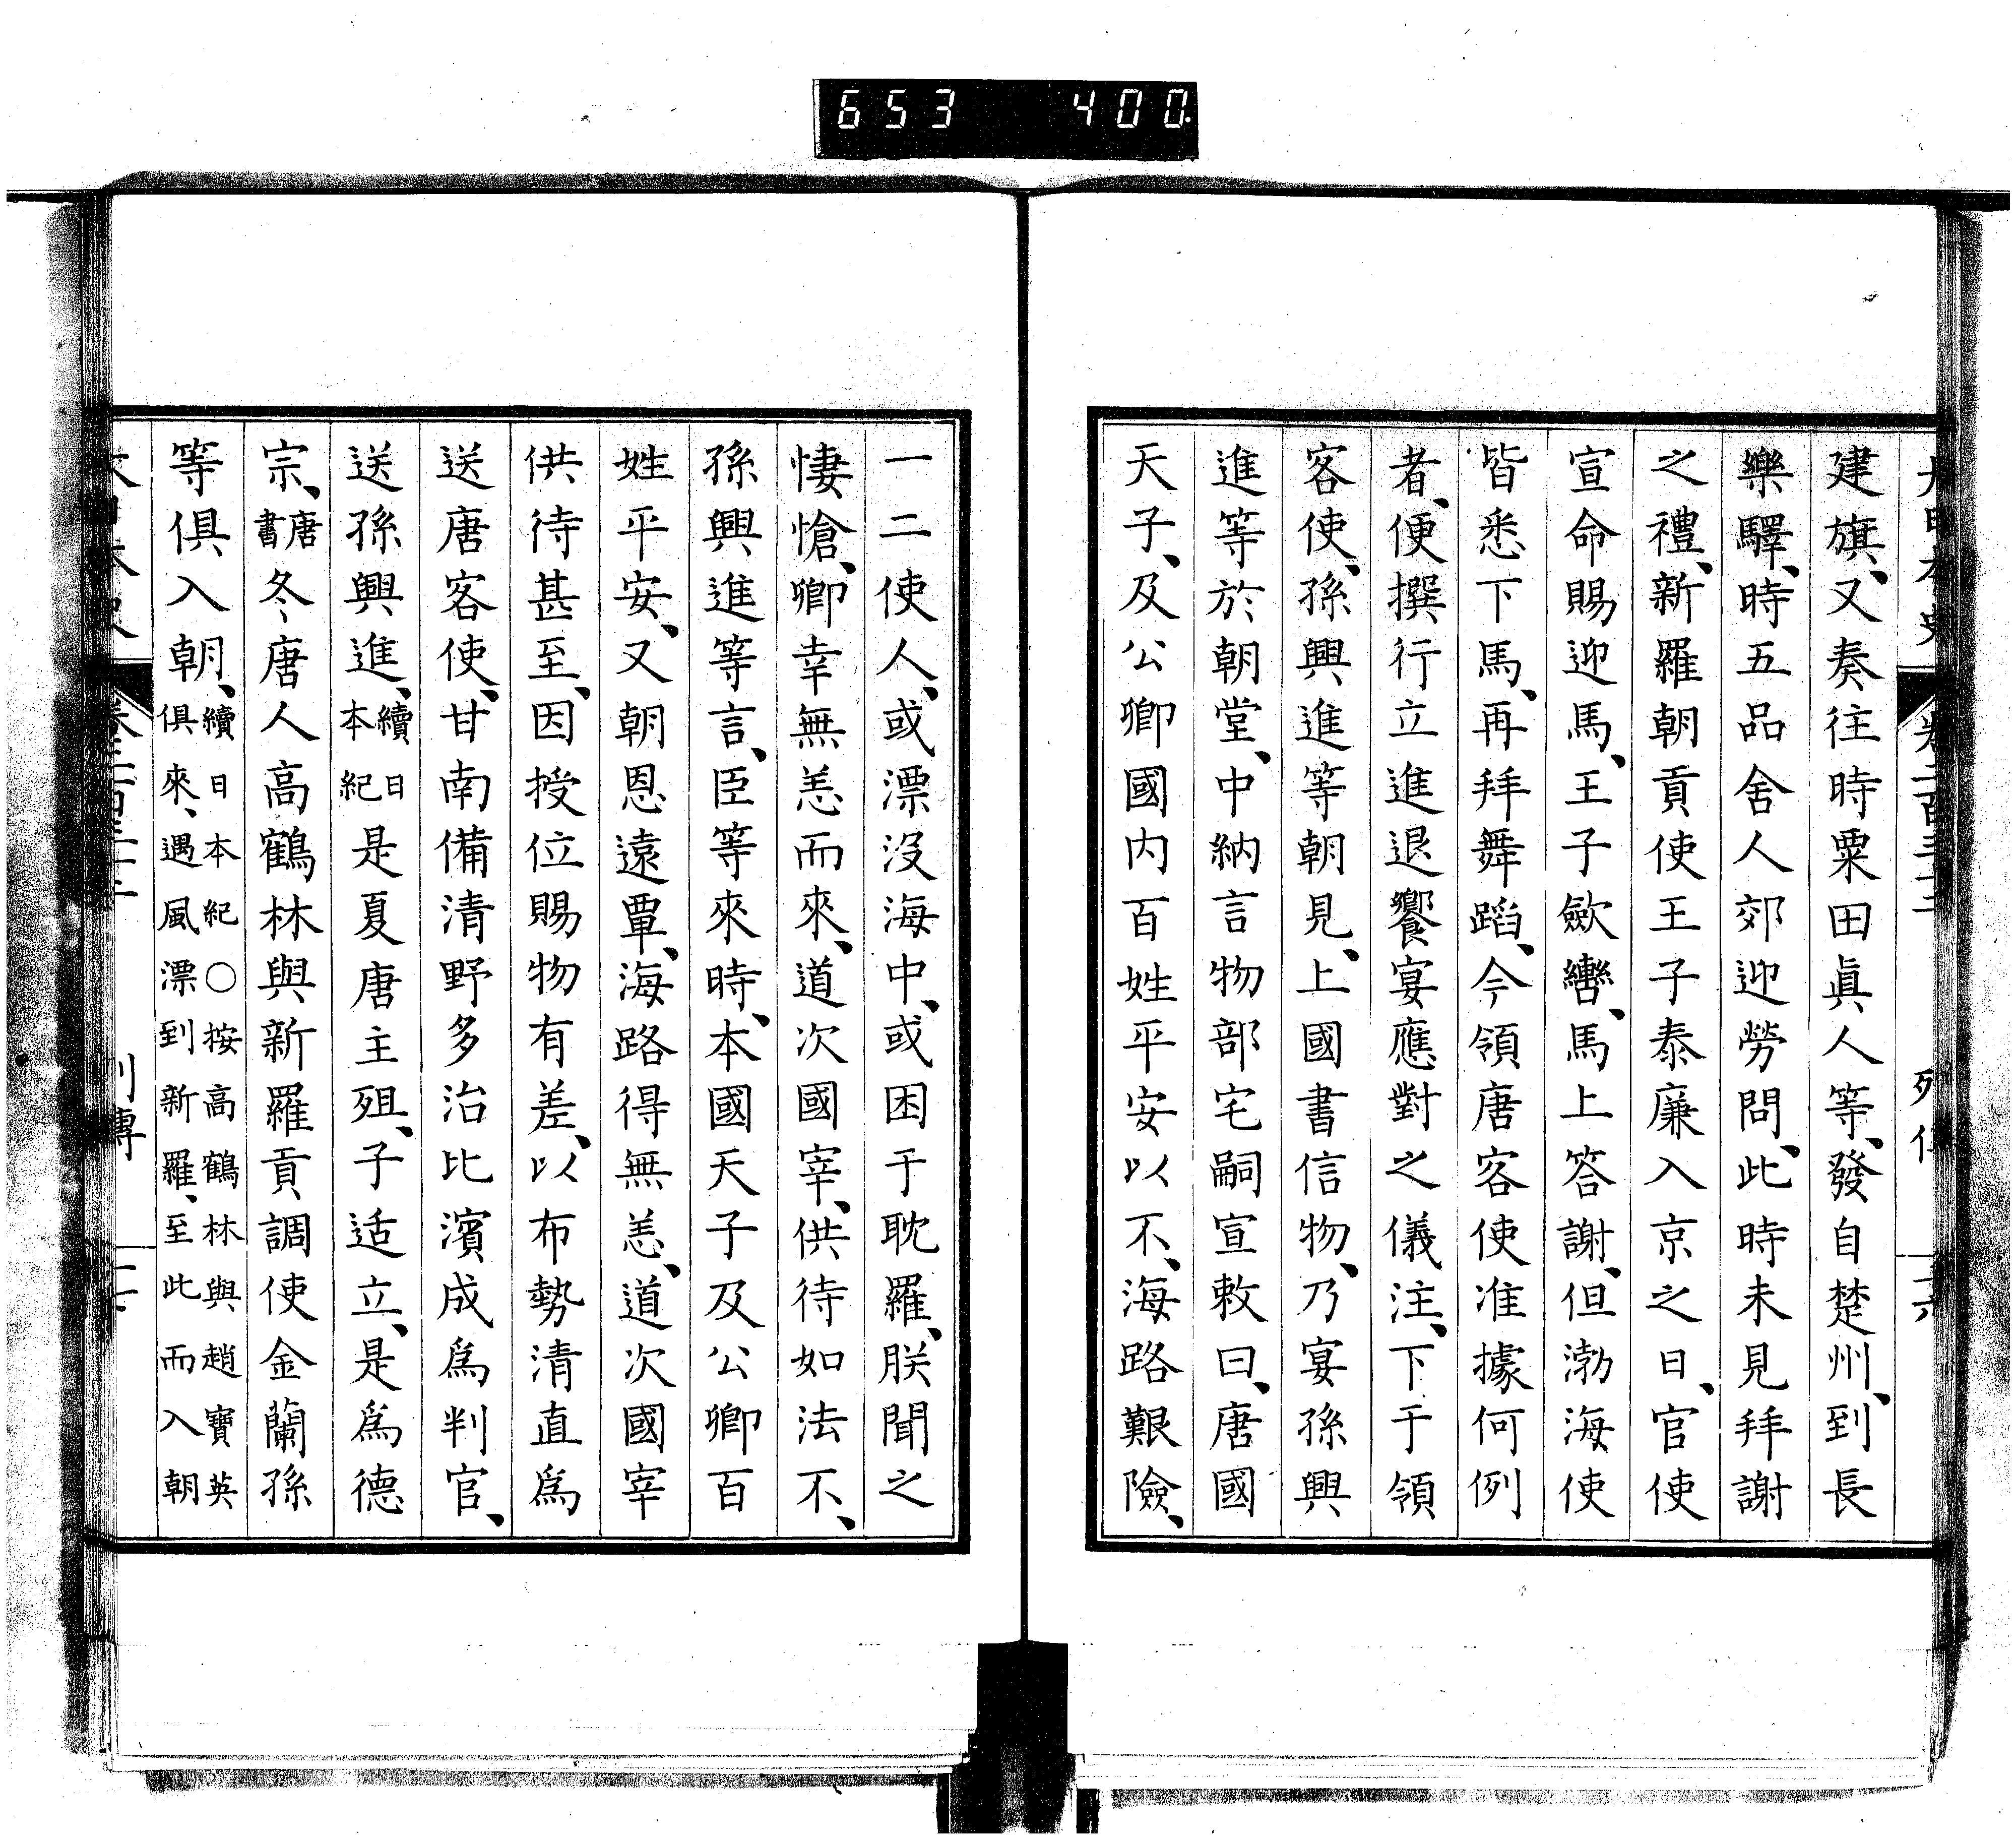 653 400.
大日本史 卷二百三十二 列傳 二十六
建旗、又奏往時粟田眞人等、發自楚州、到長
樂驛、時五品舍人郊迎勞問、此時未見拜謝
之禮、新羅朝貢使王子泰廉入京之日、官使
宣命賜迎馬、王子歛轡、馬上答謝、但渤海使
皆悉下馬、再拜舞蹈、今領唐客使准據何例
者、便撰行立進退饗宴應對之儀注、下于領
客使、孫興進等朝見、上國書信物、乃宴孫興
進等於朝堂、中納言物部宅嗣宣敕曰、唐國
天子、及公卿國内百姓平安以不、海路艱險、
一二使人、或漂沒海中、或困于耽羅、朕聞之
悽愴、卿幸無恙而來、道次國宰、供待如法不、
孫興進等言、臣等來時、本國天子及公卿百
姓平安、又朝恩遠覃、海路得無恙、道次國宰
供待甚至、因授位賜物有差、以布勢清直爲
送唐客使、甘南備清野多治比濱成爲判官、
送孫興進、續日本紀是夏唐主殂、子适立、是爲德
宗、唐書冬、唐人高鶴林與新羅貢調使金蘭孫
等俱入朝、續日本紀○按高鶴林與趙寶英
俱來、遇風漂到新羅、至此而入朝
大日本史 卷二百三十二 列傳